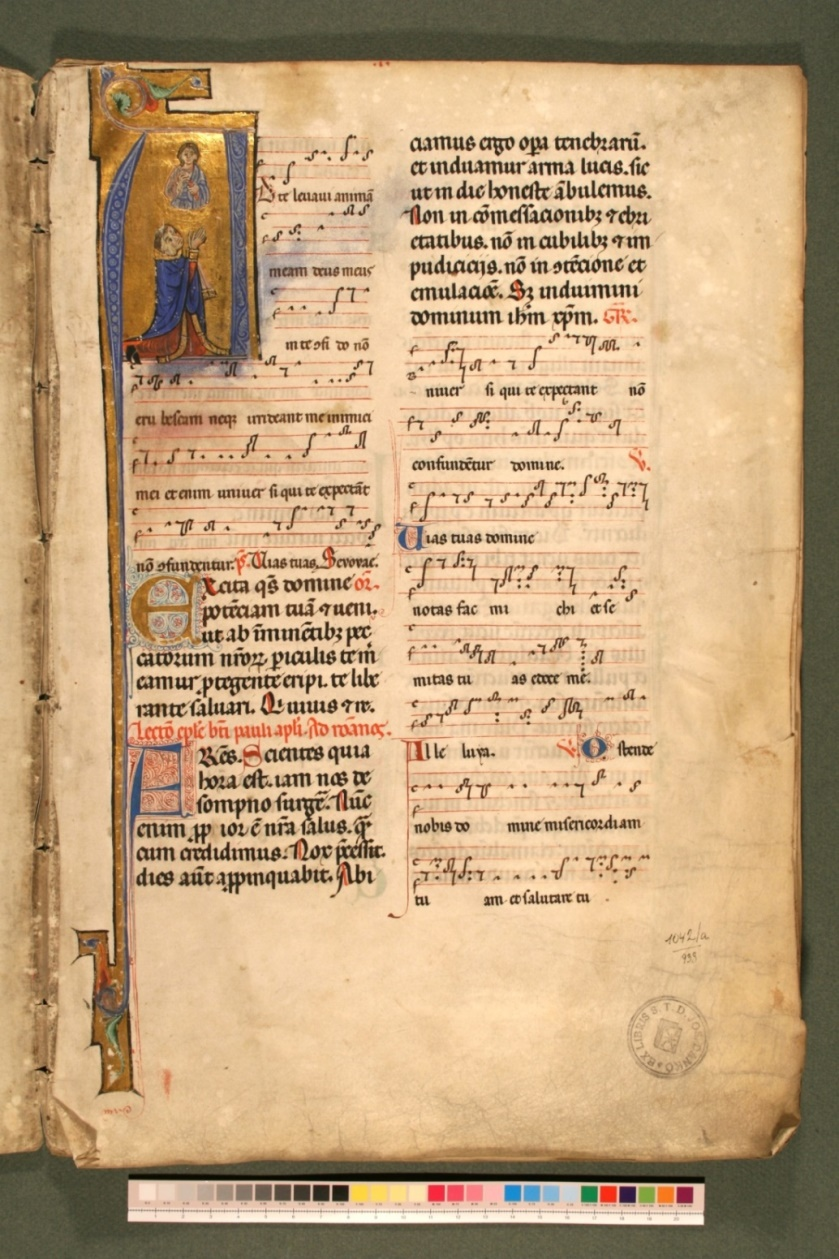 D te leuaui animā
meam deus meus
in te ɔfi do nō
eru bescam neqꝫ irrideant me inimici
mei etenim uniuer si qui te expectāt
nō ɔfundentur. p̄. Uias tuas. Seuouae.
Excita q̄s domine or̄.
potēciam tuā ⁊ ueni.
ut ab īminētibꝫ pec
catorum nr̄orꝝ piculis te m̄
eamur ꝓtegente eripi. te libe
rante saluari. Qi uiuis ⁊ re.
Lectō epl̄e bt̄i pauli apl̄i. Ad roānos.
FRēs. Scientes quia
hora est. iam nos de
sompno surgē̄. Nūc
enim ꝓp ior ē nr̄a salus. q̄
cum credidimus. Nox p̄cessit.
dies aūt appinquabit. Abi
ciamus ergo oꝑa tenebrarū.
et induamur arma lucis. sic
ut in die honeste ābulemus.
Non in cōmessacionibꝫ ⁊ ebri
etatibus. nō in cubilibꝫ ⁊ im
pudicicijs. nō in ɔtēcione et
emulaciōe. Sꝫ induimini
dominum ih̄m xp̄m. GR̄.
niuer si qui te expectant nō
confundētur domine. V.
Uias tuas domine
notas fac mi chi et se
mitas tu as edoce me.
Alle luya. V. Ostende
nobis do mine misericordiam
tu am et salutare tu
1042/a
933
EX LIBRIS S. T. D. JOS. DANKÓ